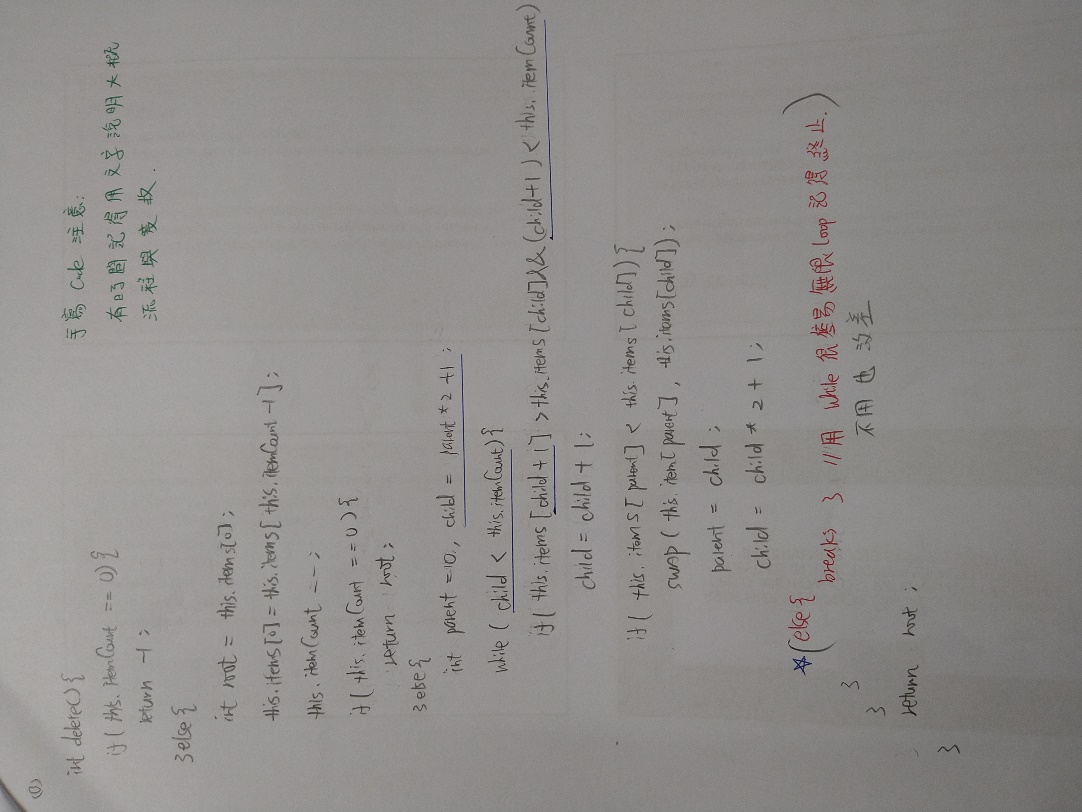 (1)
int delete() {
if ( this.itemCount == 0) {
return -1 ;
} else {
int root = this.items[0] ;
this.items[0] = this.items[ this.itemCount -1 ] ;
this.itemCount -- ;
if ( this.itemCount == 0 ) {
return root ;
} else {
int parent = 0 , child = parent * 2 +1 ;
while ( child < this.itemCount) {
if ( this.items [child + 1] > this.items [child] && (child+1) < this.itemCount)
child = child + 1 ;
if ( this.items [parent] < this.items [child]) {
swap ( this.item[parent] , this.items[child]) ;
parent = child ;
child = child * 2 + 1 ;
☆ (else {
breaks } // 用 while 很容易無限 loop 記得終止. )
不用也沒差
}
}
return root ;
}
手寫 Code 注意:
有時間記得用文字說明大概
流程與變數.